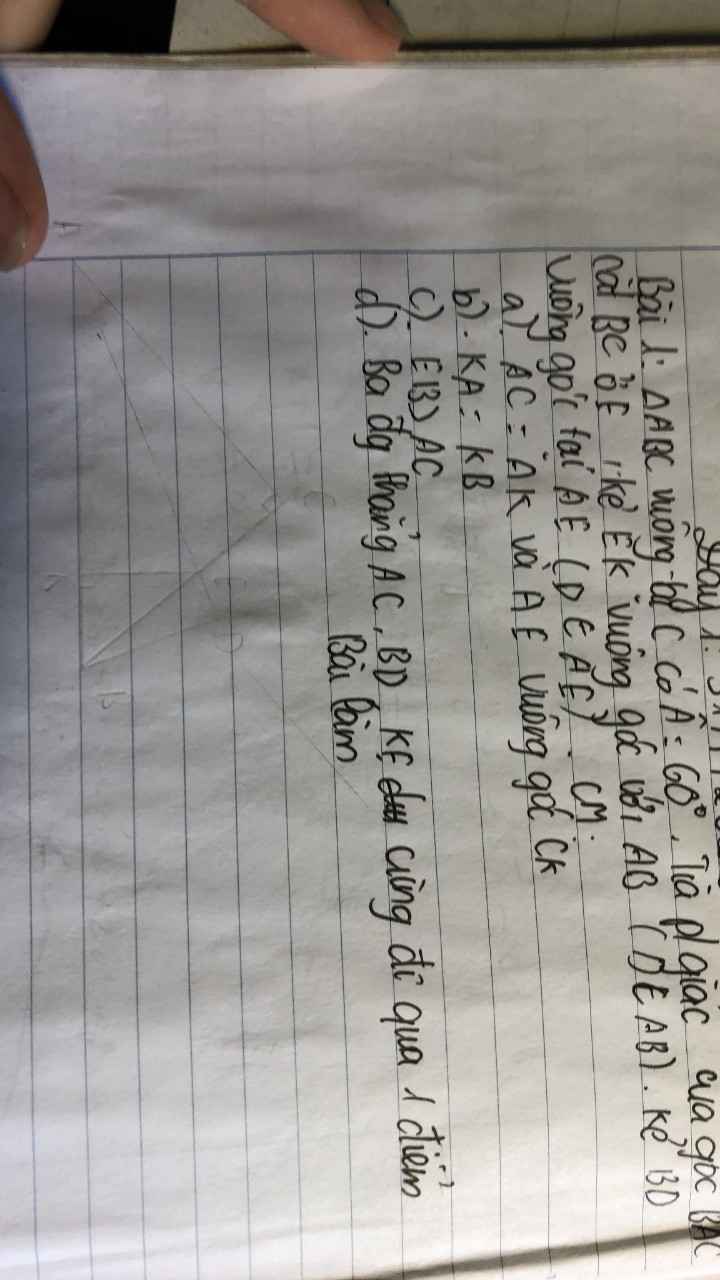 Bài 1: ΔABC vuông tại C có Â = 60°. Tia p/giác của góc BAC
cắt BC ở E, kẻ EK vuông góc với AB (D ∈ AB). Kẻ BD
vuông gói tại AE (D ∈ AE). CM:
a). AC = AK và AE vuông góc CK
b). KA = KB
c). EB > AC
d). Ba đg thẳng AC, BD KE cùng đi qua 1 điểm
Bài làm
A
C
D
K
B